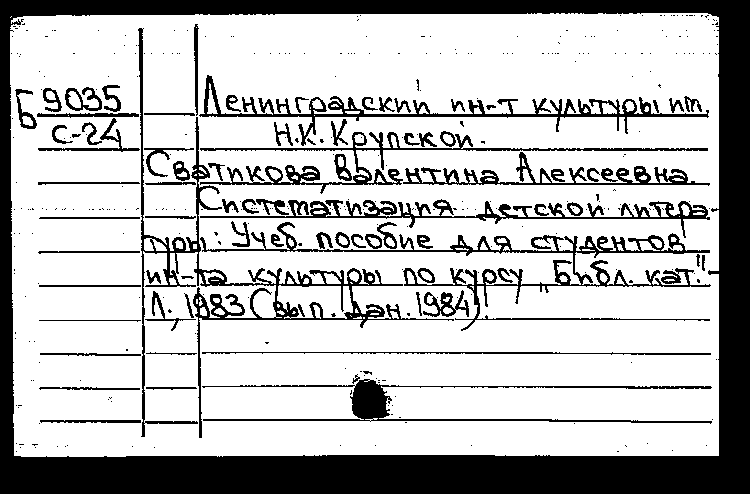 Б 9035 Ленинградский ин-т культуры им.
С-24 Н.К. Крупской.
Сватикова Валентина Алексеевна.
Систематизация детской литера-
туры: Учеб. пособие для студентов
ин-та культуры по курсу „Библ. кат."-
Л., 1983 (вып. дан. 1984).